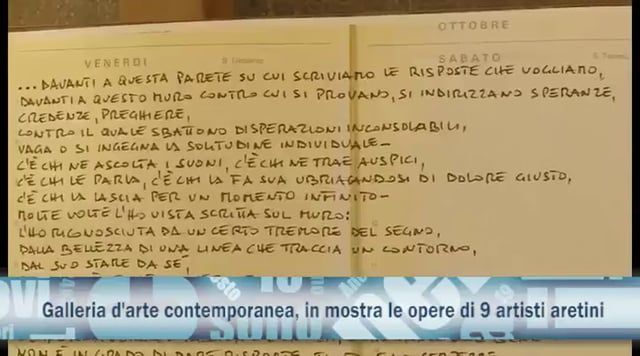 OTTOBRE
VENERDI
SABATO
... DAVANTI A QUESTA PARETE SU CUI SCRIVIAMO LE RISPOSTE CHE VOGLIAMO,
DAVANTI A QUESTO MURO CONTRO CUI SI PROVANO, SI INDIRIZZANO SPERANZE,
CREDENZE, PREGHIERE,
CONTRO IL QUALE SBATTONO DISPERAZIONI INCONSOLABILI,
VAGA O SI INGEGNA LA SOLITUDINE INDIVIDUALE -
C'È CHI NE ASCOLTA I SUONI, C'È CHI NE TRAE AUSPICI,
C'È CHI LE PARLA, C'È CHI LA FA SUA UBRIACANDOSI DI DOLORE GIUSTO,
C'È CHI LA LASCIA PER UN MOMENTO INFINITO -
MOLTE VOLTE L'HO VISTA SCRITTA SUL MURO:
L'HO RICONOSCIUTA DA UN CERTO TREMORE DEL SEGNO,
DALLA BELLEZZA DI UNA LINEA CHE TRACCIA UN CONTORNO,
DAL SUO STARE DA SÉ,
Galleria d'arte contemporanea, in mostra le opere di 9 artisti aretini